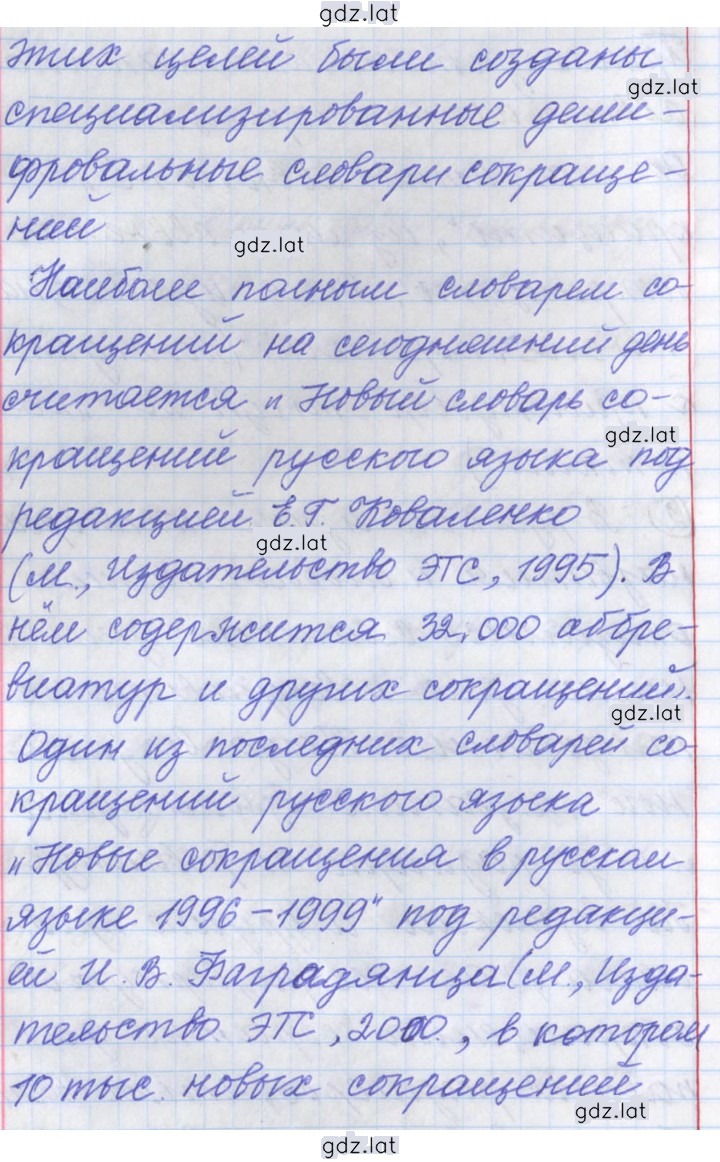 gdz.lat
этих целей были созданы
gdz.lat
специализированные деши-
фровальные словари сокраще-
ний
gdz.lat
Наиболее полным словарем со-
кращений на сегодняшний день
считается „Новый словарь со-
gdz.lat
кращений русского языка под
редакцией Е.Г. Коваленко
gdz.lat
(М., Издательство ЭТС, 1995). В
нём содержится 32.000 аббре-
виатур и других сокращений.
gdz.lat
Один из последних словарей со-
кращений русского языка
„Новые сокращения в русском
языке 1996-1999" под редакци-
ей И. В. Фаградянца (М., Изда-
тельство ЭТС, 2000., в котором
10 тыс. новых сокращений
gdz.lat
gdz.lat